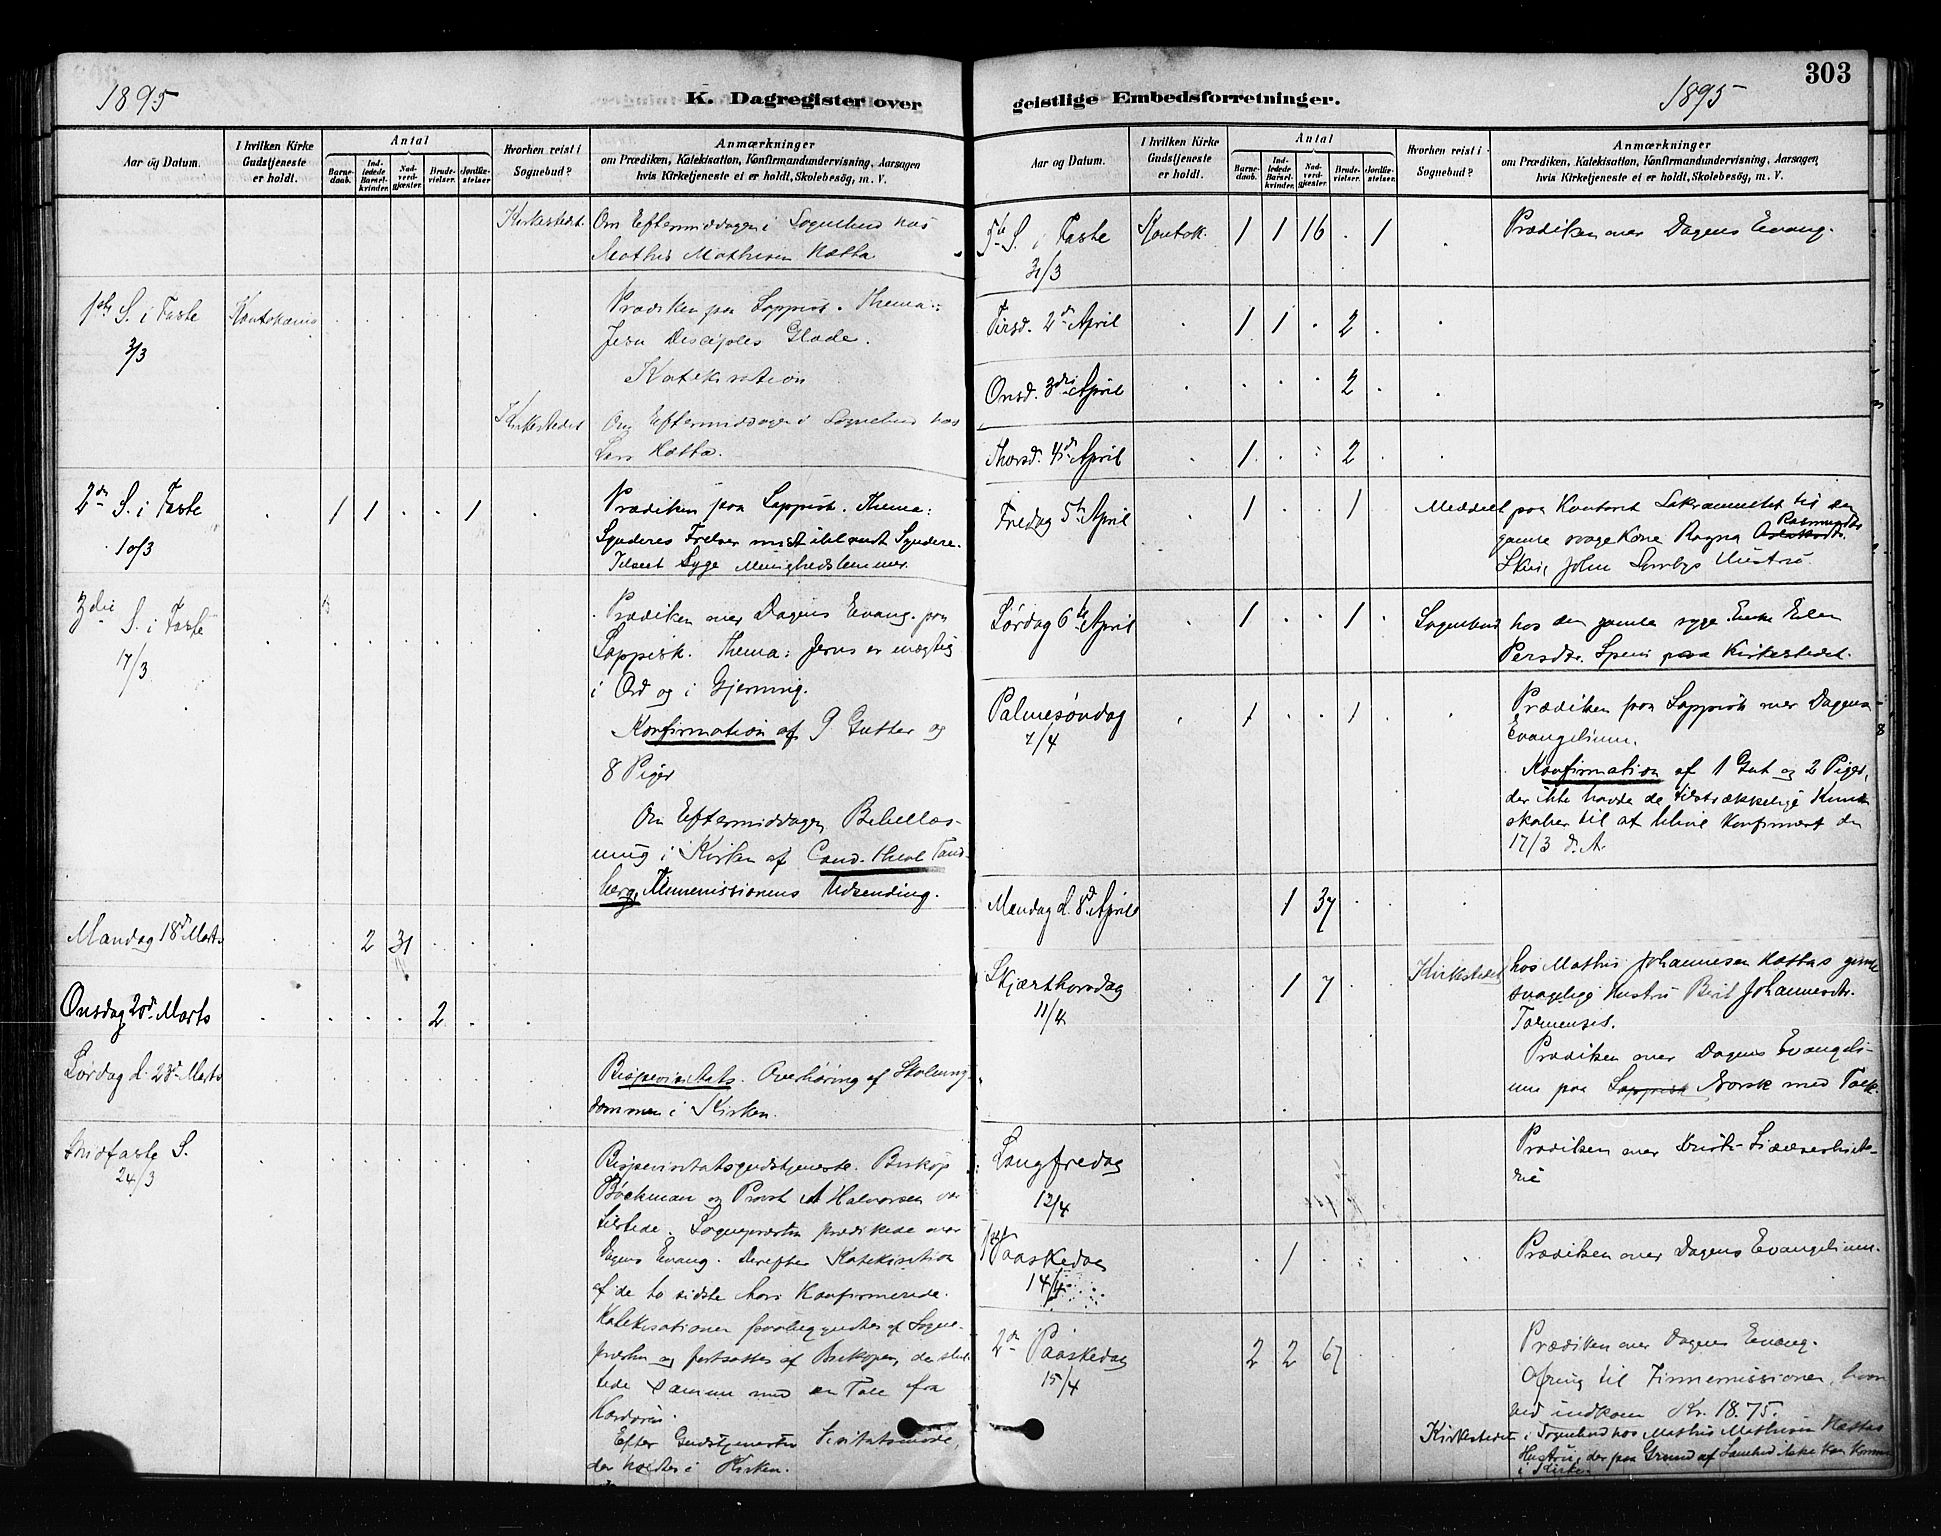 1895
K. Dagregister over
Aar og Datum.
I hvilken Kirke
Gudstjeneste
er holdt.
Antal
Barne-
daab.
Ind-
ledede
Barsel-
kvinder.
Nad-
verd-
gjester.
Brude-
vielser.
Jordfæ-
stelser.
Hvorhen reist i
Sognebud?
Anmærkninger
om Prædiken, Katekisation, Konfirmandundervisning, Aarsagen
hvis Kirketjeneste ei er holdt, Skolebesøg, m. V.
Kirkestedet. Om Eftermiddagen i Sognebud hos
Mathis Mathisen Hætta
1ste S. i Faste Kautokeino Prædiken paa Lappisk. Thema:
3/3 Jesu Disciples Glæde.
Katekisation
Kirkestedet Om Eftermiddagen i Sognebud hos
Lars Hætta.
2den S. i Faste 1 1 1 Prædiken paa Lappisk. Thema:
10/3 Synderes Frelser midt iblandt Syndere.
Tilseet Syge Menighedslemmer.
3die S. i Faste Prædiken over Dagens Evang. paa
17/3 Lappisk. Thema: Jesus er mægtig
i Ord og i Gjerning.
Konfirmation af 9 Gutter og
8 Piger
Om Eftermiddagen Bibellæs-
ning i Kirken af Cand. theol Tand-
berg, Finnemissionens Udsending.
Mandag 18de Marts 2 31
Onsdag 20de Marts 2
Lørdag d. 23de Marts Bispevisitats. Overhøring af Skoleung-
dommen i Kirken.
Midfaste S. Bispevisitatsgudstjeneste. Biskop
24/3 Bøckman og Provst A Halvorsen var
tilstede. Sognepræsten prædikede over
Dagens Evang. Derefter Katekisation
af de to sidste Aars Konfirmerede.
Katekisationen paabegyndtes af Sogne-
præsten og fortsattes af Biskopen, der slut-
tede samme med en Tale fra
Kordøren.
Efter Gudstjenesten Visitatsmøde,
der holdtes i Kirken.
303
geistlige Embedsforretninger.
1895
Aar og Datum.
I hvilken Kirke
Gudstjeneste
er holdt.
Antal
Barne-
daab.
Ind-
ledede
Barsel-
kvinder.
Nad-
verd-
gjester.
Brude-
vielser.
Jordfæ-
stelser.
Hvorhen reist i
Sognebud?
Anmærkninger
om Prædiken, Katekisation, Konfirmandundervisning, Aarsagen
hvis Kirketjeneste ei er holdt, Skolebesøg, m. V.
5te S. i Faste Kautok. 1 1 16 . 1 Prædiken over Dagens Evang.
31/3
Tirsd. 2den April 1 1 . 2
Onsd. 3die April 2
Thorsd. 4de April 1 2
Fredag 5te April 1 1 Meddelt paa Kontoret Sakramentet til den
gamle svage Kone Ragna Rasmusdtr.
Skui, John Hustru.
Lørdag 6te April 1 1 Sognebud hos den gamle syge Enke Elen
Persdtr. Spein paa Kirkestedet.
Palmesøndag 1 1 Prædiken paa Lappisk over Dagens
7/4 Evangelium.
Konfirmation af 1 Gut og 2 Piger,
der ikke havde de tilstrækkelige Kund-
skaber til at blive konfirmert den
17/3 d. A.
Mandag d. 8de April 1 37
Skjærthorsdag 1 7 Kirkestedet hos Mathis Johannesen Hættas gamle
11/4 svagelige Hustru Berit Johannesdtr.
Tornensis.
Prædiken over Dagens Evangeli-
um paa Lappisk Norsk med Tolk.
Langfredag Prædiken over Kristi Lidelseshisto-
12/4 rie
1ste Paaskedag 1 Prædiken over Dagens Evangelium.
14/4
2den Paaskedag 2 2 67 Prædiken over Dagens Evang.
15/4 Ofring til Finnemissionen, hvor-
ved indkom Kr. 18.75.
Kirkestedet i Sognebud hos Mathis Mathisen Hættas
Hustru, der paa Grund af ikke kan komme
i Kirke.